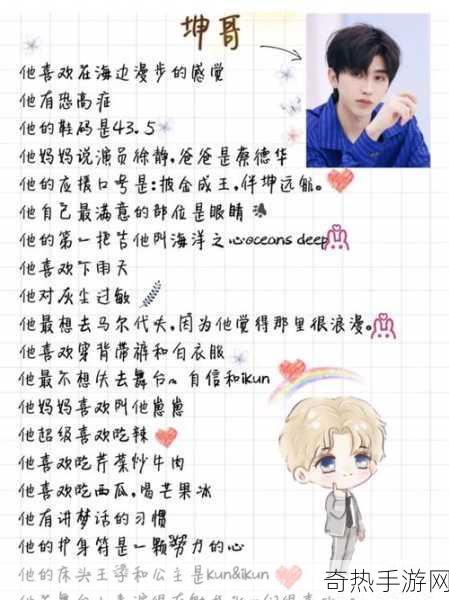 坤哥
他喜欢在海边漫步的感觉
他有恐高症
他的鞋码是43.5
他妈妈说演员徐静,爸爸是蔡德华
他的应援口号是:披金成王,伴坤远航。
他自己最满意的部位是眼睛
他的第一把吉他叫海洋之心oceans deep
他喜欢下雨天
他对灰尘过敏
他最想去马尔代夫,因为他觉得那里很浪漫。
他喜欢穿背带裤和白衣服
他最不想失去舞台、自信和ikun
他妈妈喜欢叫他崽崽
他超级喜欢吃辣
他喜欢吃芹菜炒牛肉
他喜欢吃西瓜,喝芒果冰
他有讲梦话的习惯
他的护身符是一颗努力的心
他的床头王子和公主是kun&ikun
奇热手游网